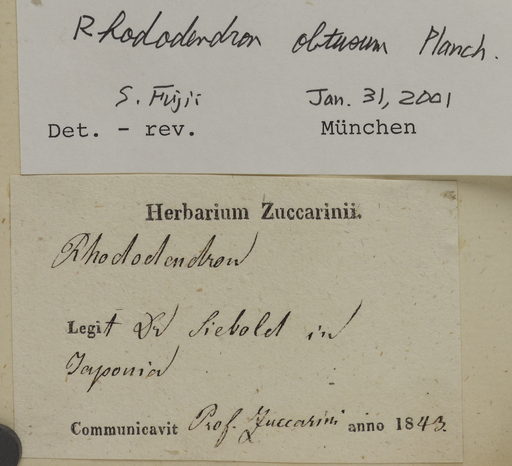 Rhododendron obtusum Planch.
S. Fujii Jan. 31, 2001
Det. - rev. München
Herbarium Zuccarinii.
Rhododendron
Legit Dr Siebold in
Japonia
Communicavit Prof. Zuccarini anno 1843